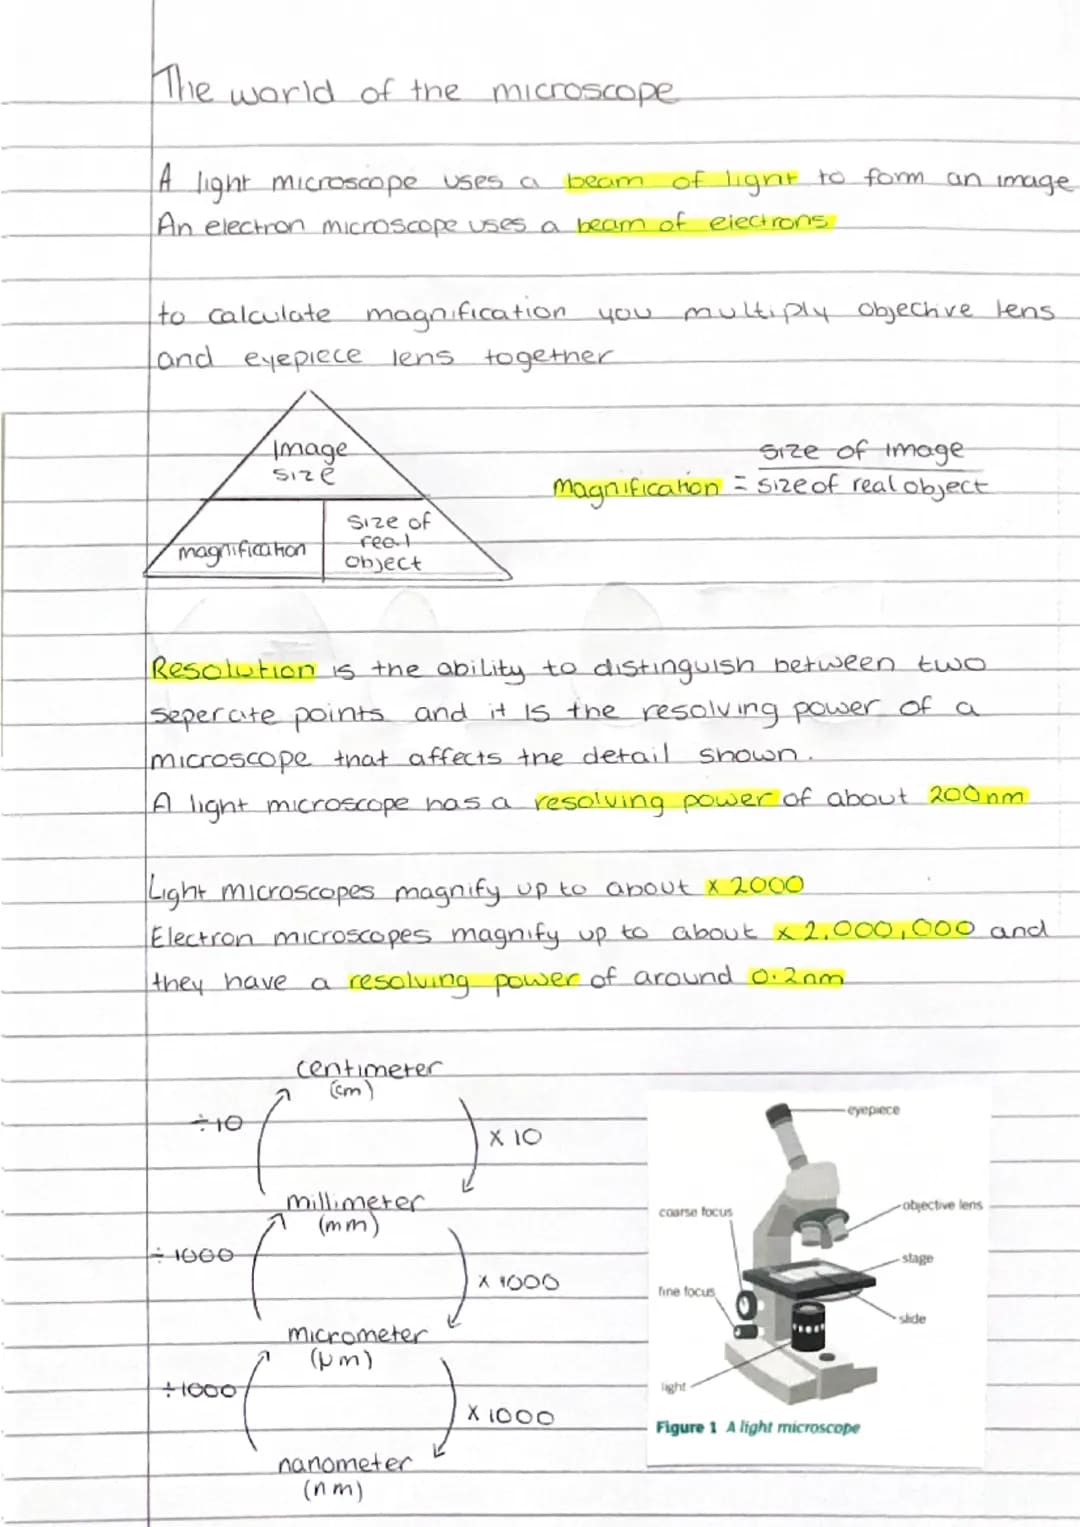 The world of the microscope
A light microscope uses a beam of light to form an image
An electron microscope uses a beam of electrons
to calculate magnification you multiply objective lens
and eyepiece lens together
Image
size
magnification
size of
real
object
size of image
Magnification = size of real object
Resolution is the ability to distinguish between two
seperate points and it is the resolving power of a
microscope that affects the detail shown.
A light microscope has a resolving power of about 200nm
Light microscopes magnify up to about x 2000
Electron microscopes magnify up to about x 2,000,000 and
they have a resolving power of around 0.2nm
centimeter
(cm)
÷10
x 10
millimeter
(mm)
÷ 1000
x 1000
micrometer
(µm)
÷1000
x 1000
nanometer
(nm)
eyepiece
coarse focus
objective lens
stage
fine focus
slide
light
Figure 1 A light microscope